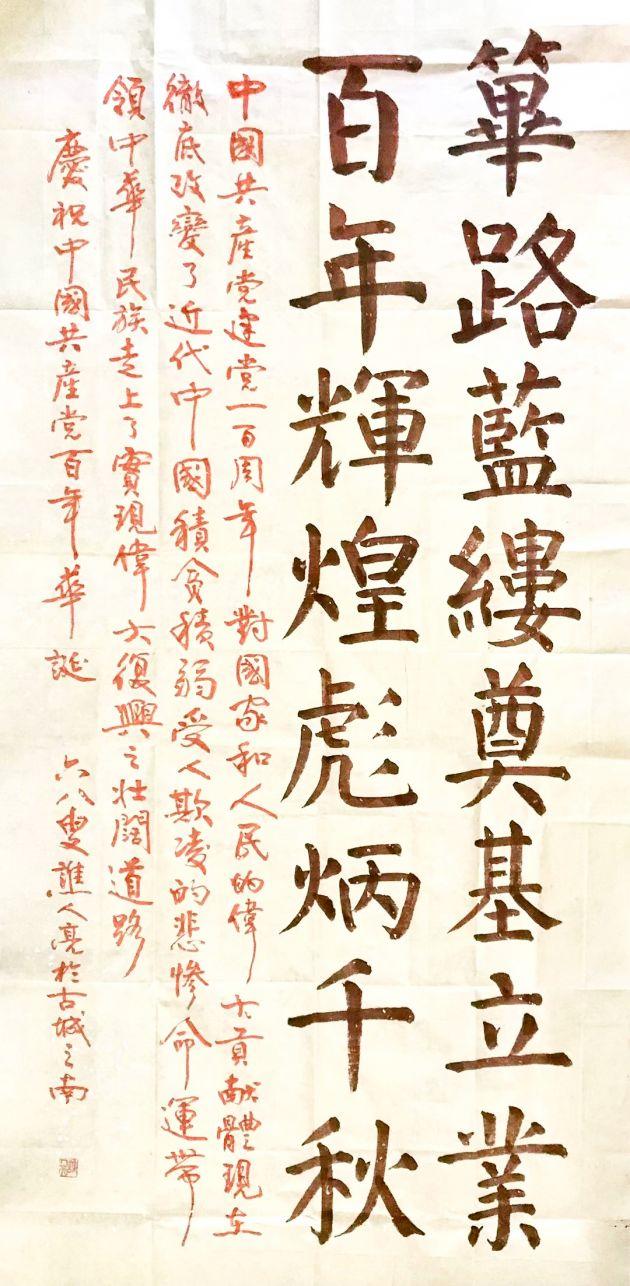 篳路藍縷奠基立業
百年輝煌彪炳千秋
中國共產党建党一百周年對國家和人民的偉大貢献體現在
徹底改變了近代中國積貧積弱受人欺凌的悲慘命運帶
領中華民族走上了實現偉大復興之壯闊道路
慶祝中國共產党百年華誕
六八叟譙人亮於古城之南